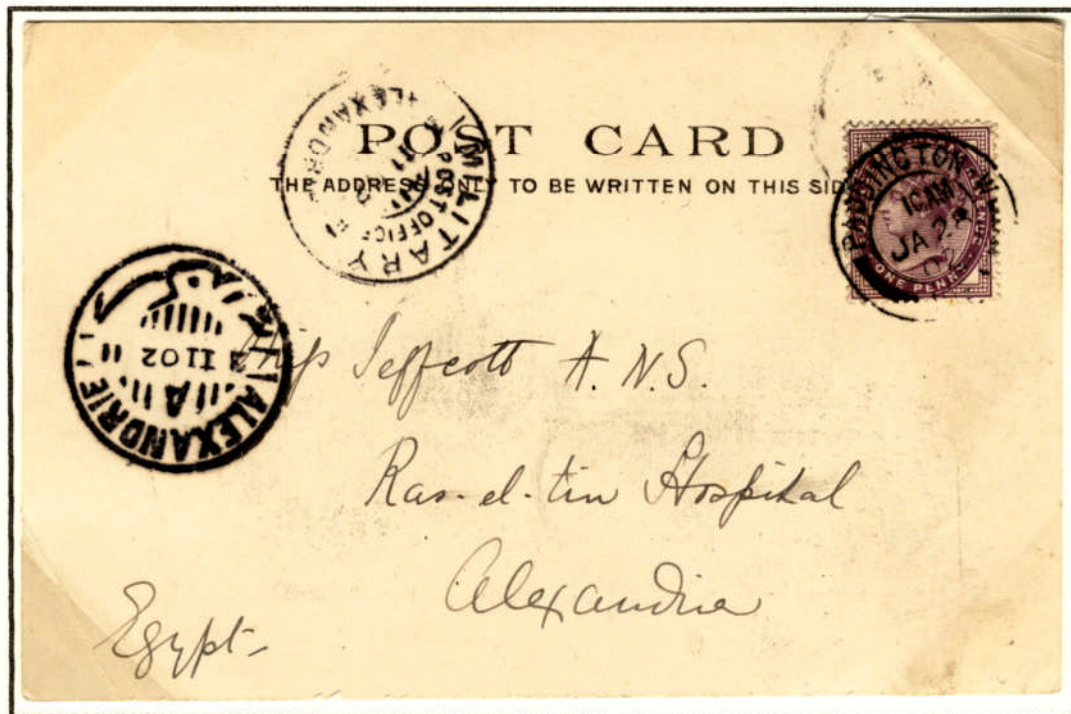 POST CARD
THE ADDRESS ONLY TO BE WRITTEN ON THIS SIDE
MILITARY
POST OFFICE
ALEXANDRI
PADDINGTON W
10 AM
JA 2
02
ONE PENNY
ALEXANDRIE
A
II 02
Miss Jeffcott A.N.S.
Ras-el-tin Hospital
Alexandria
Egypt-